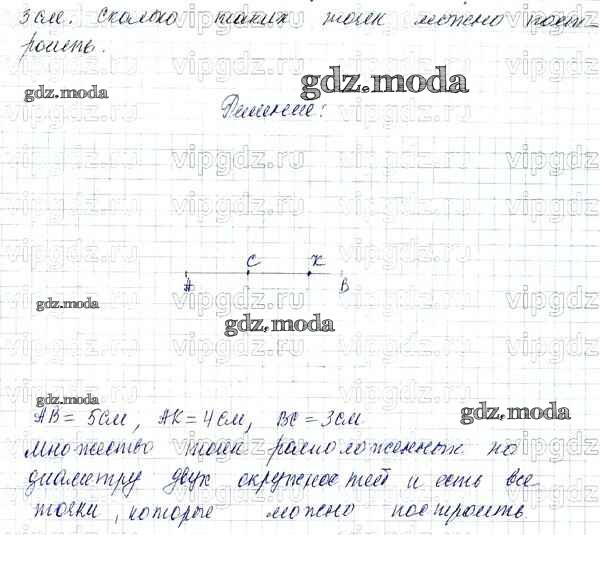 3 см. Сколько таких точек можно пост-
роить.
gdz.moda
gdz.moda
Решение:
C K
A B
gdz.moda
gdz.moda
gdz.moda
AB = 5см, AK = 4см, BC = 3см
gdz.moda
множество точек расположенных на
диаметру двух окружностей и есть все
точки, которые можно построить.
vipgdz.ru